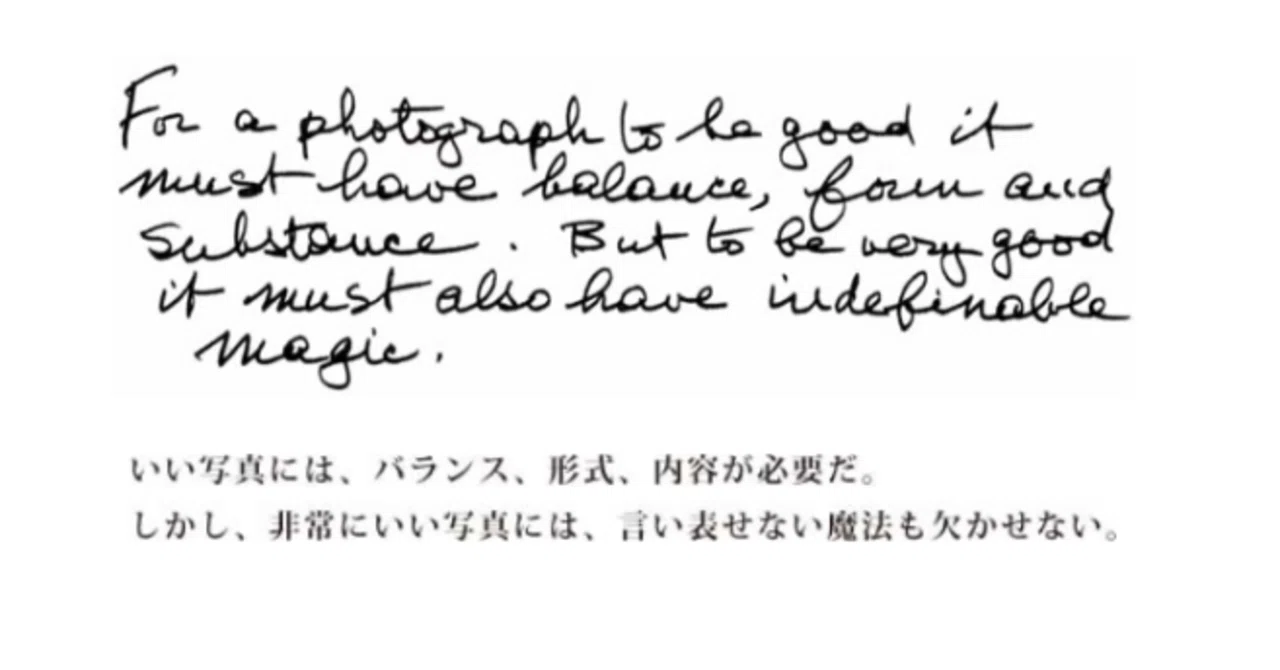 For a photograph to be good it
must have balance, form and
substance. But to be very good
it must also have indefinable
magic.
いい写真には、バランス、形式、内容が必要だ。
しかし、非常にいい写真には、言い表せない魔法も欠かせない。